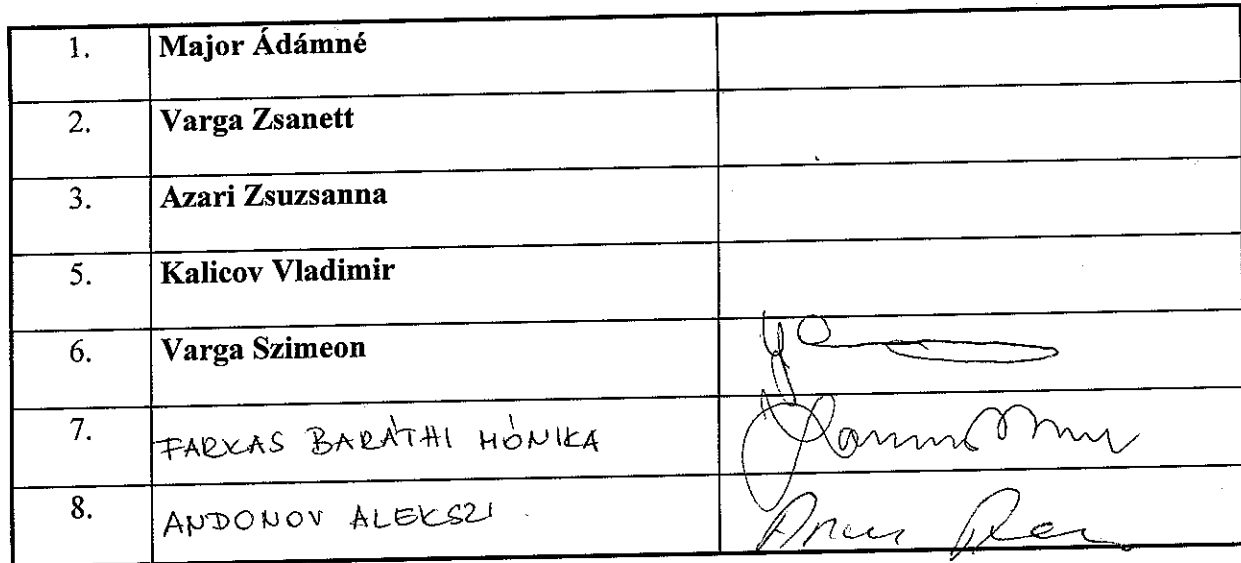 1. Major Ádámné
2. Varga Zsanett
3. Azari Zsuzsanna
5. Kalicov Vladimir
6. Varga Szimeon
7. FARKAS BARÁTHI MÓNIKA
8. ANDONOV ALEKSZI